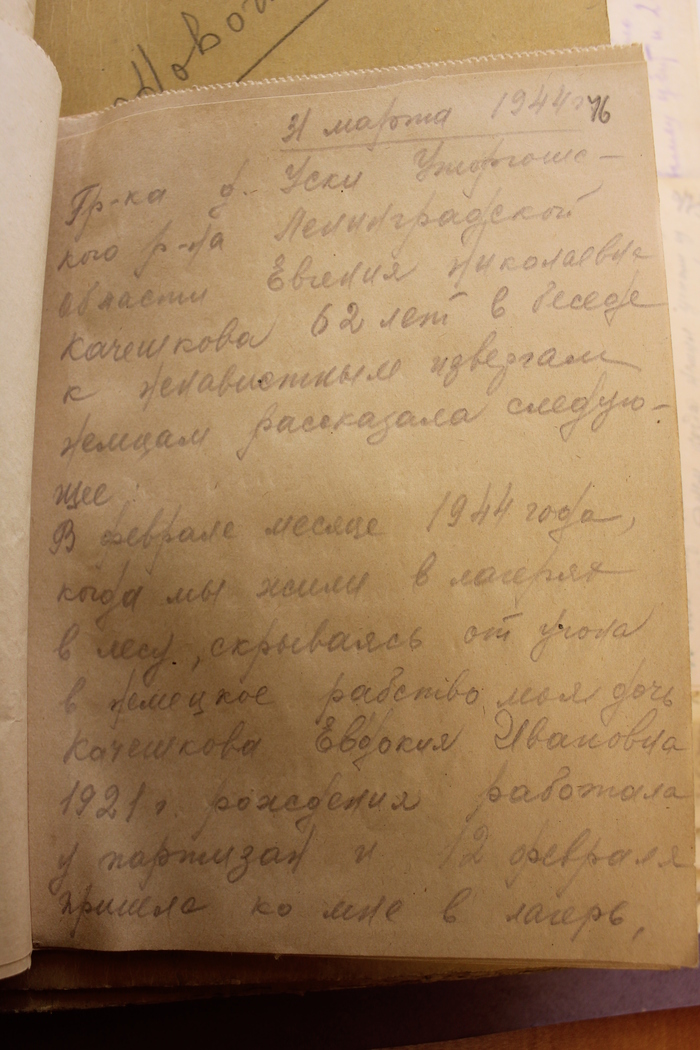 Новог
31 марта 1944 г. 76
Гр-ка д. Уски Уторгошс-
кого р-на Ленинградской
области Евгения Николаевна
Качешкова 62 лет в беседе
к ненавистным извергам
немцам рассказала следую-
щее
В феврале месяце 1944 года,
когда мы жили в лагерях
в лесу, скрываясь от угона
в немецкое рабство моя дочь
Качешкова Евдокия Ивановна
1921 г. рождения работала
у партизан и 12 февраля
пришла ко мне в лагерь,